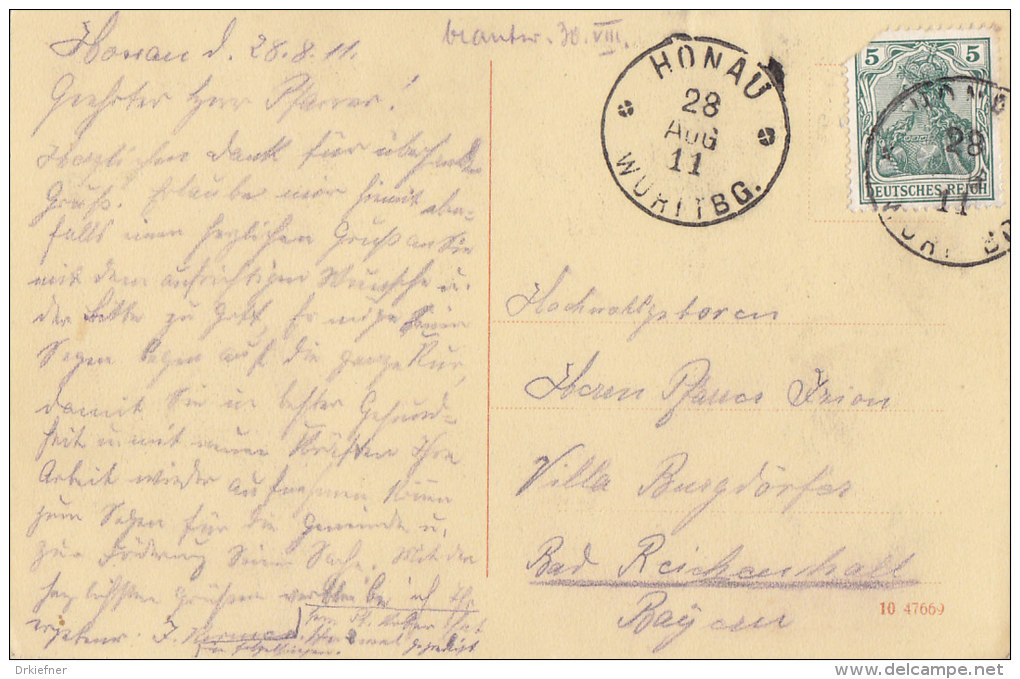 Honau d. 28.8.11.
beantw. 30. VIII.
Geehrter Herr Pfarrer!
Herzlichen Dank für übersandten
Gruß. Erlaube mir hiemit eben-
falls einen herzlichen Gruß an Sie
mit dem aufrichtigen Wunsche u.
der Bitte zu Gott, Er möge Seinen
Segen legen auf die ganze Kur,
damit Sie in bester Gesund-
heit u. mit neuen Kräften Ihre
Arbeit wieder aufnehmen können
zum Segen für die Gemeinde u.
zur Förderung Seiner Sache. Mit den
herzlichsten Grüßen verbleibe ich Ihr
ergebener J.
HONAU
28
AUG
11
WÜRTTBG.
5 5
DEUTSCHES REICH
28
11
Hochwohlgeboren
Herrn Pfarrer Irion
Villa Burgdörfer
Bad Reichenhall
Bayern
10 47669
Drkiefner
www.delcampe.net